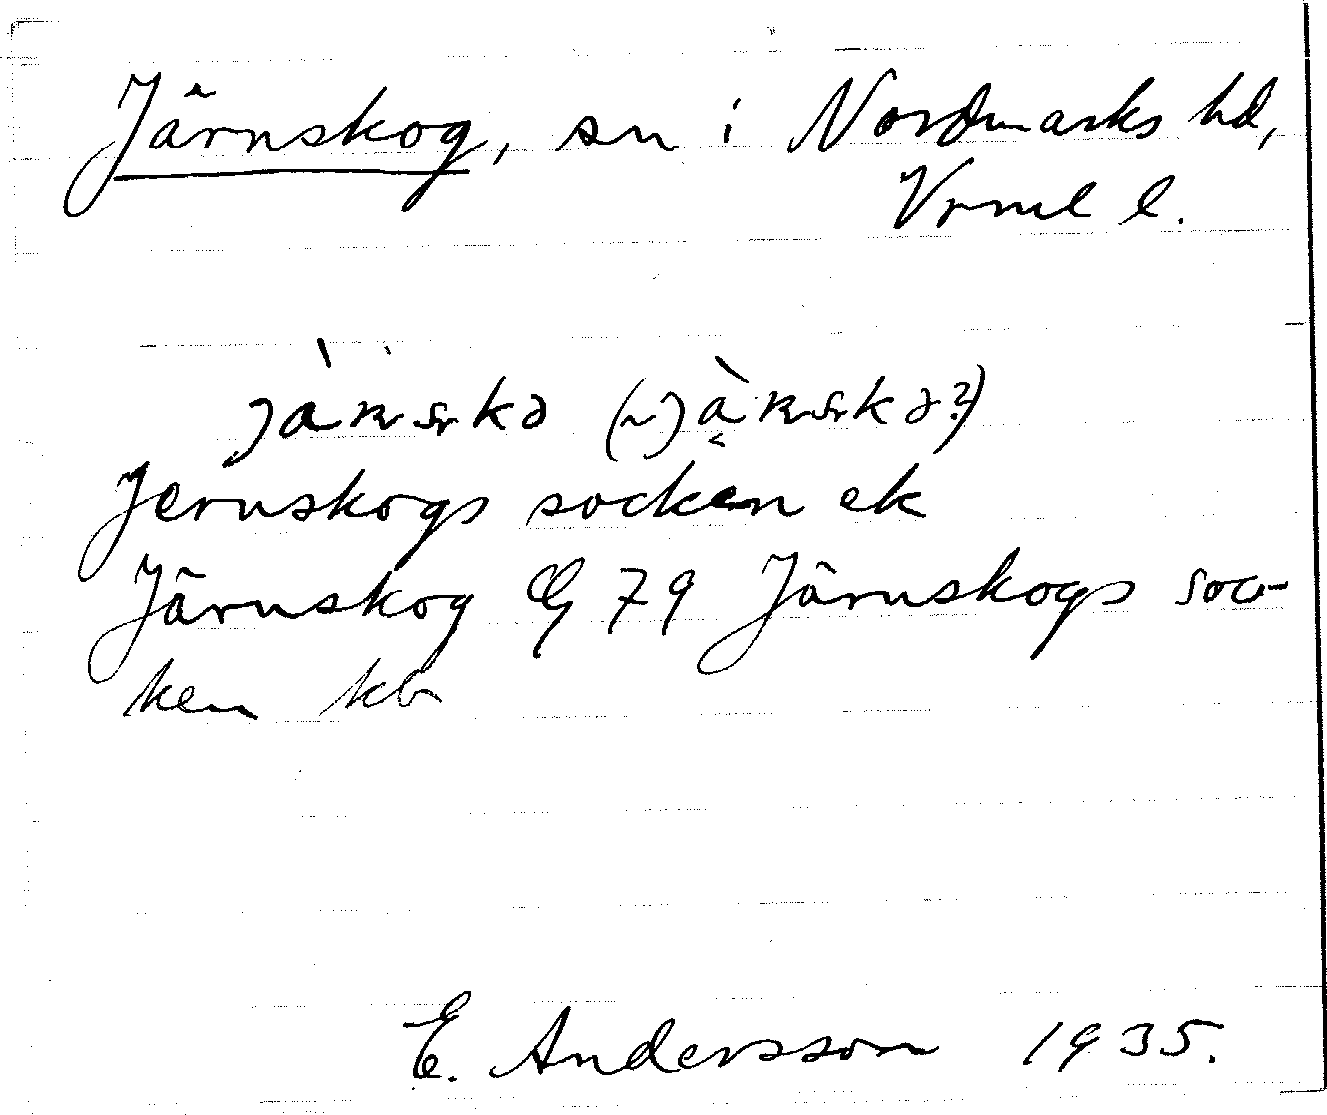 Järnskog, sn i Nordmarks hd,
Vrml l.
Jernskogs socken ek
Järnskog G 79 Järnskogs soc-
ken kb
E. Andersson 1935.